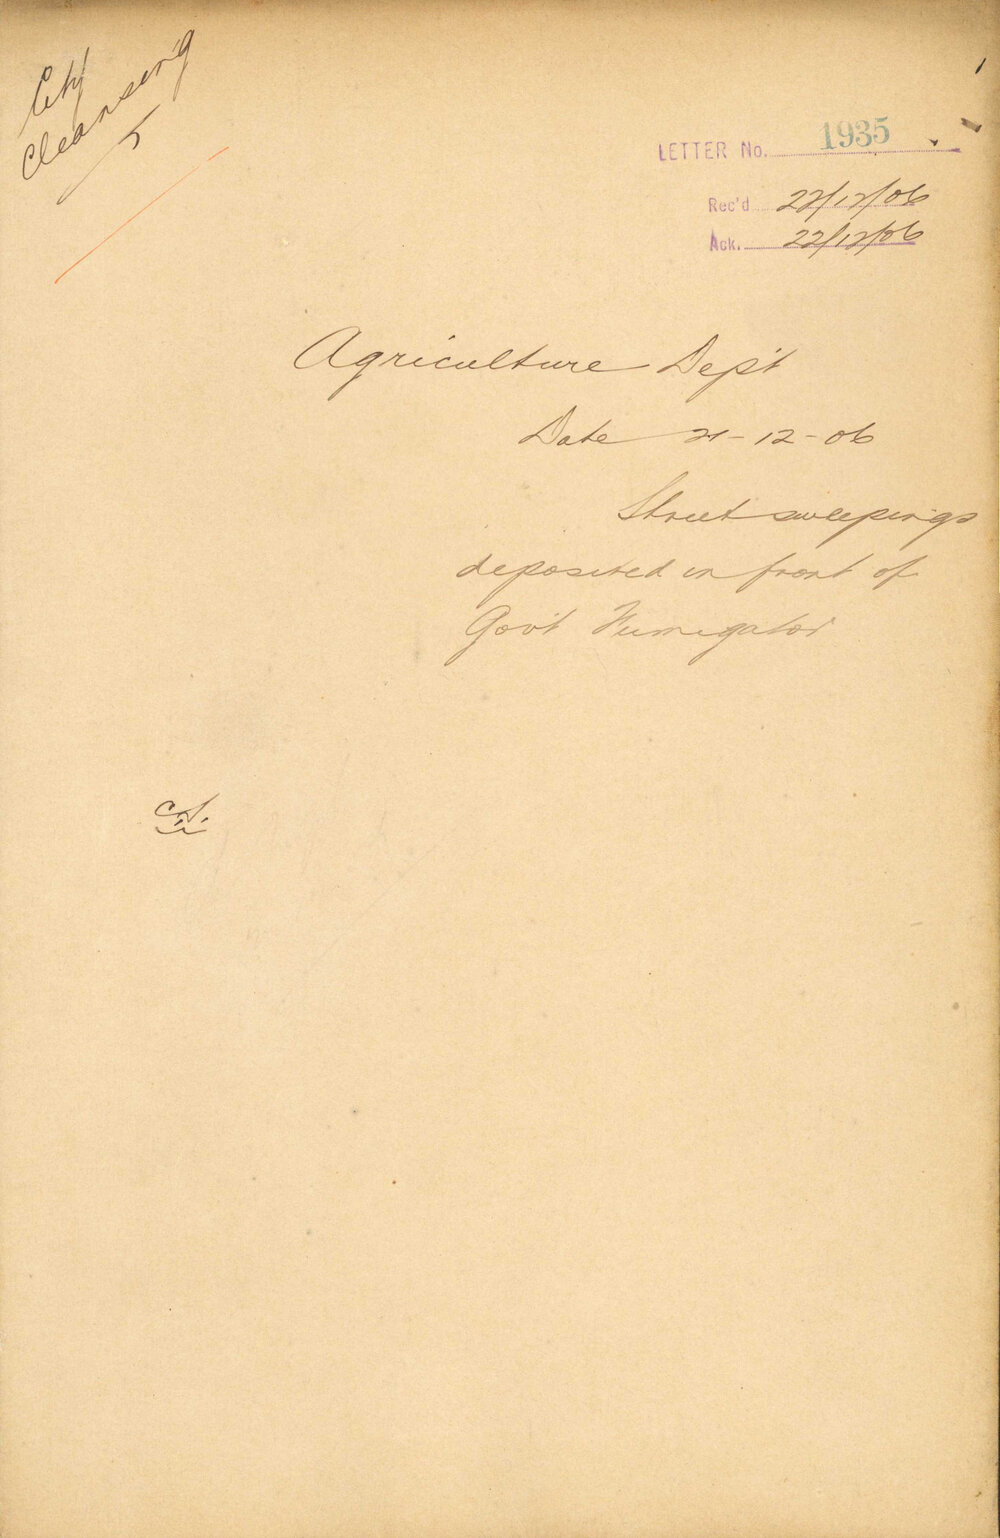 City
Cleansing
5
LETTER No. 1935
Rec'd 22/12/06
Ack. 22/12/06
Agriculture Dep't
Date 21-12-06
Street sweepings
deposited in front of
Gov't Fumigator